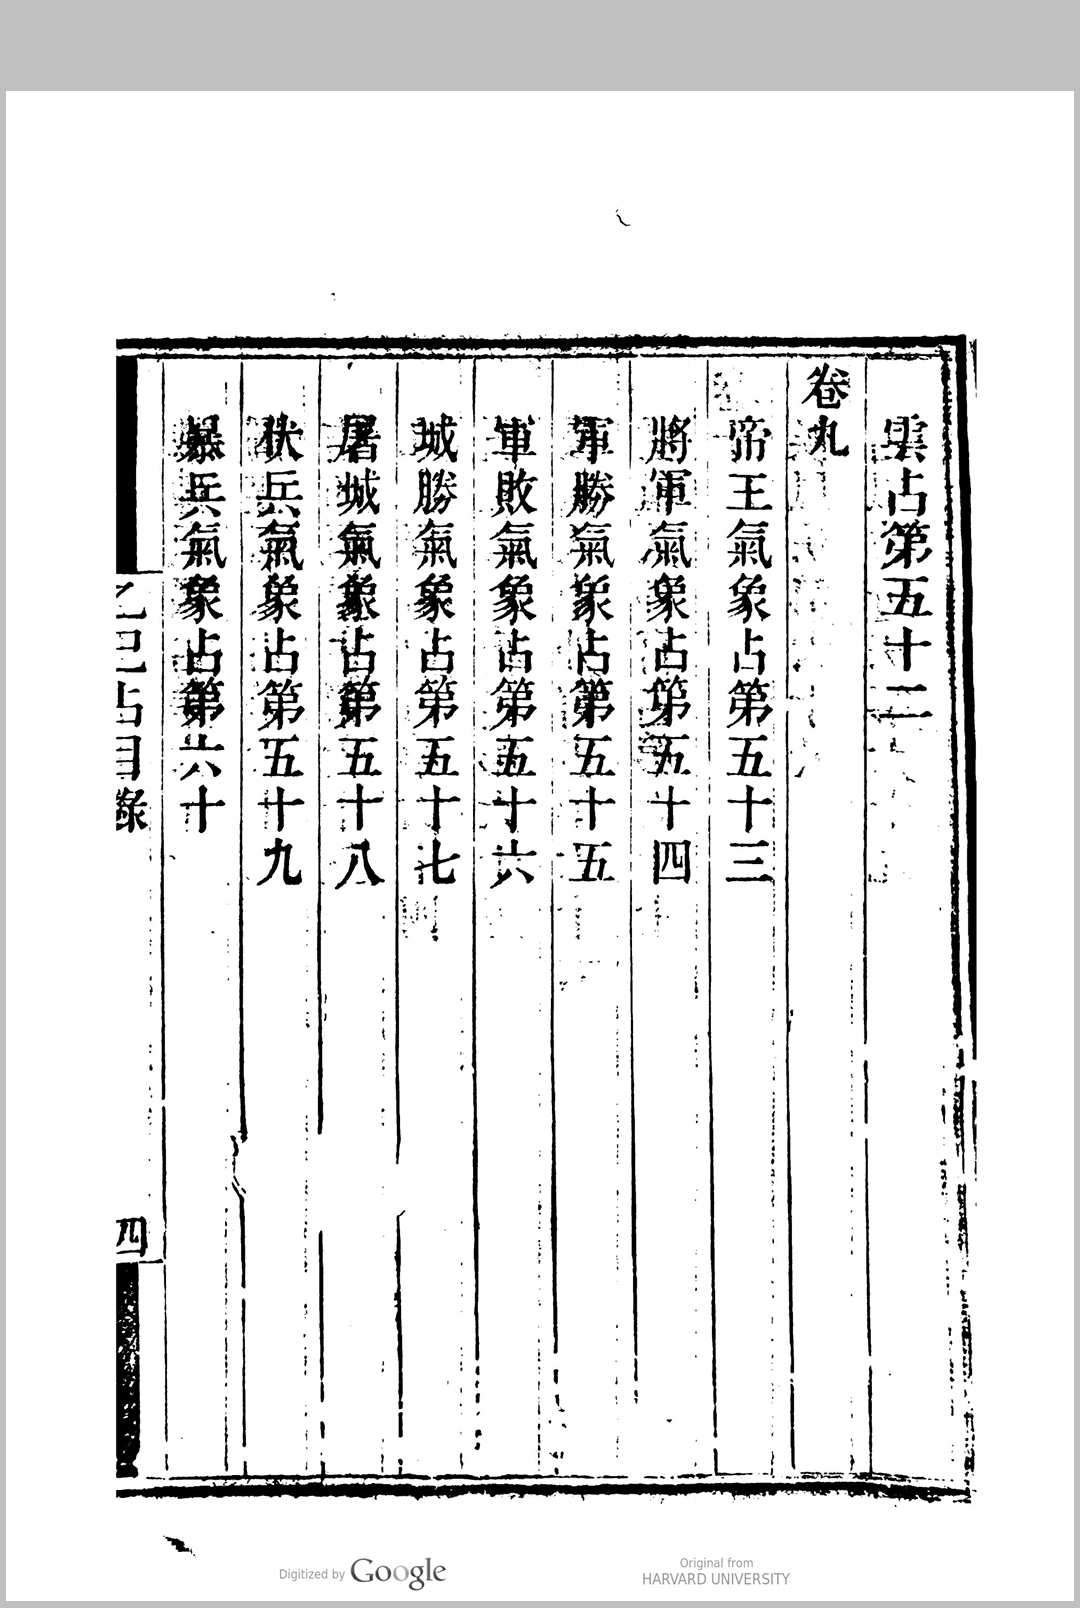 雲占第五十二
卷九
帝王氣象占第五十三
將軍氣象占第五十四
軍勝氣象占第五十五
軍敗氣象占第五十六
城勝氣象占第五十七
屠城氣象占第五十八
伏兵氣象占第五十九
暴兵氣象占第六十
乙巳占目錄
四
Digitized by Google
Original from
HARVARD UNIVERSITY